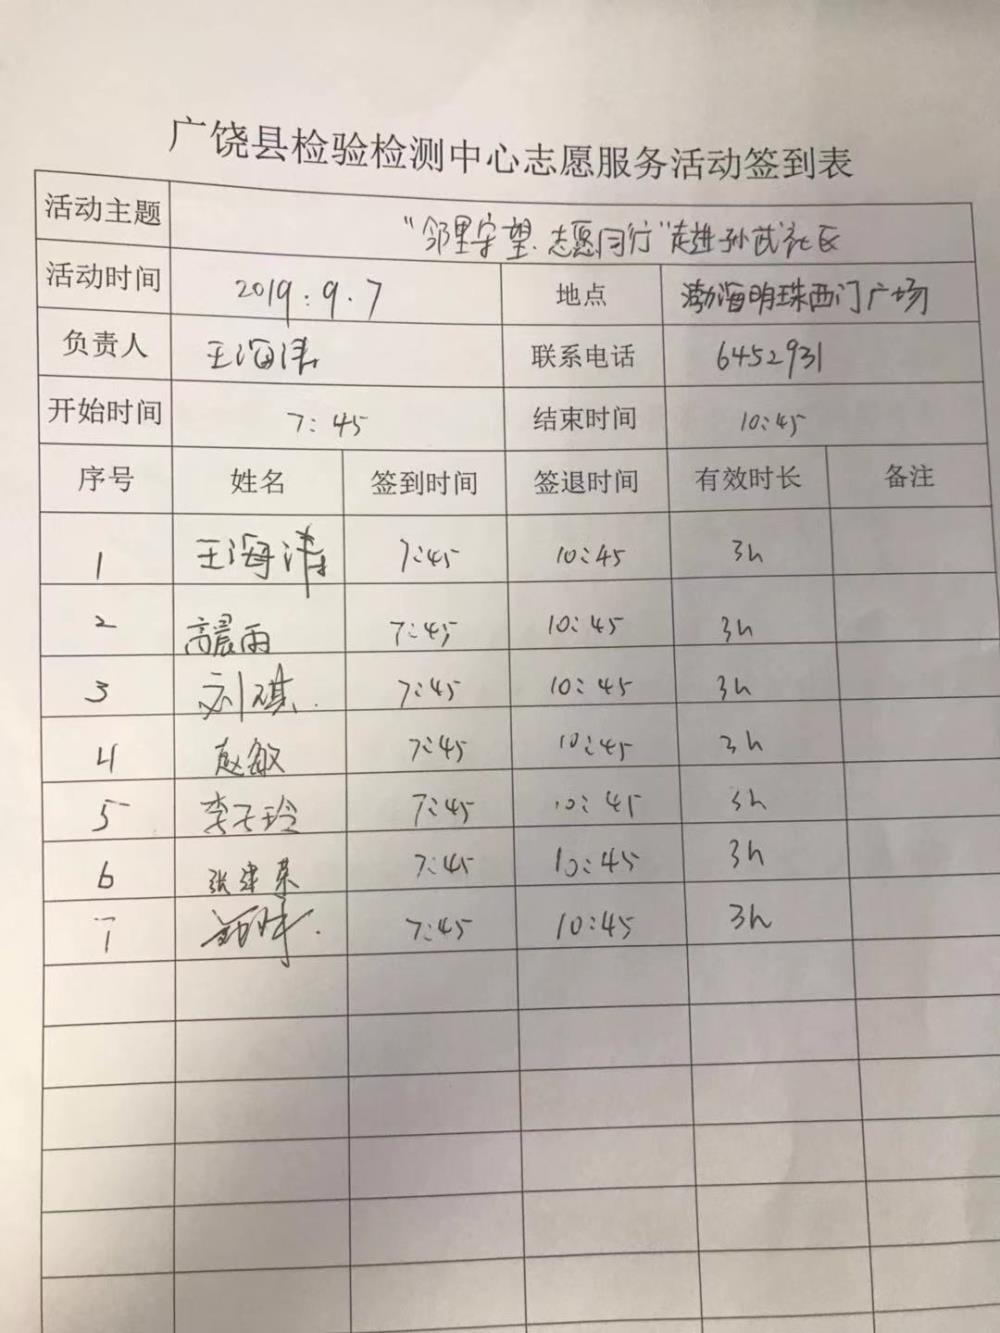 广饶县检验检测中心志愿服务活动签到表
活动主题 “邻里守望.志愿同行”走进孙武社区
活动时间 2019:9.7 地点 渤海明珠西门广场
负责人 王海涛 联系电话 6452931
开始时间 7:45 结束时间 10:45
序号 姓名 签到时间 签退时间 有效时长 备注
1 王海涛 7:45 10:45 3h
2 高晨雨 7:45 10:45 3h
3 刘琪 7:45 10:45 3h
4 赵敏 7:45 10:45 3h
5 李玉玲 7:45 10:45 3h
6 张建荣 7:45 10:45 3h
7 7:45 10:45 3h